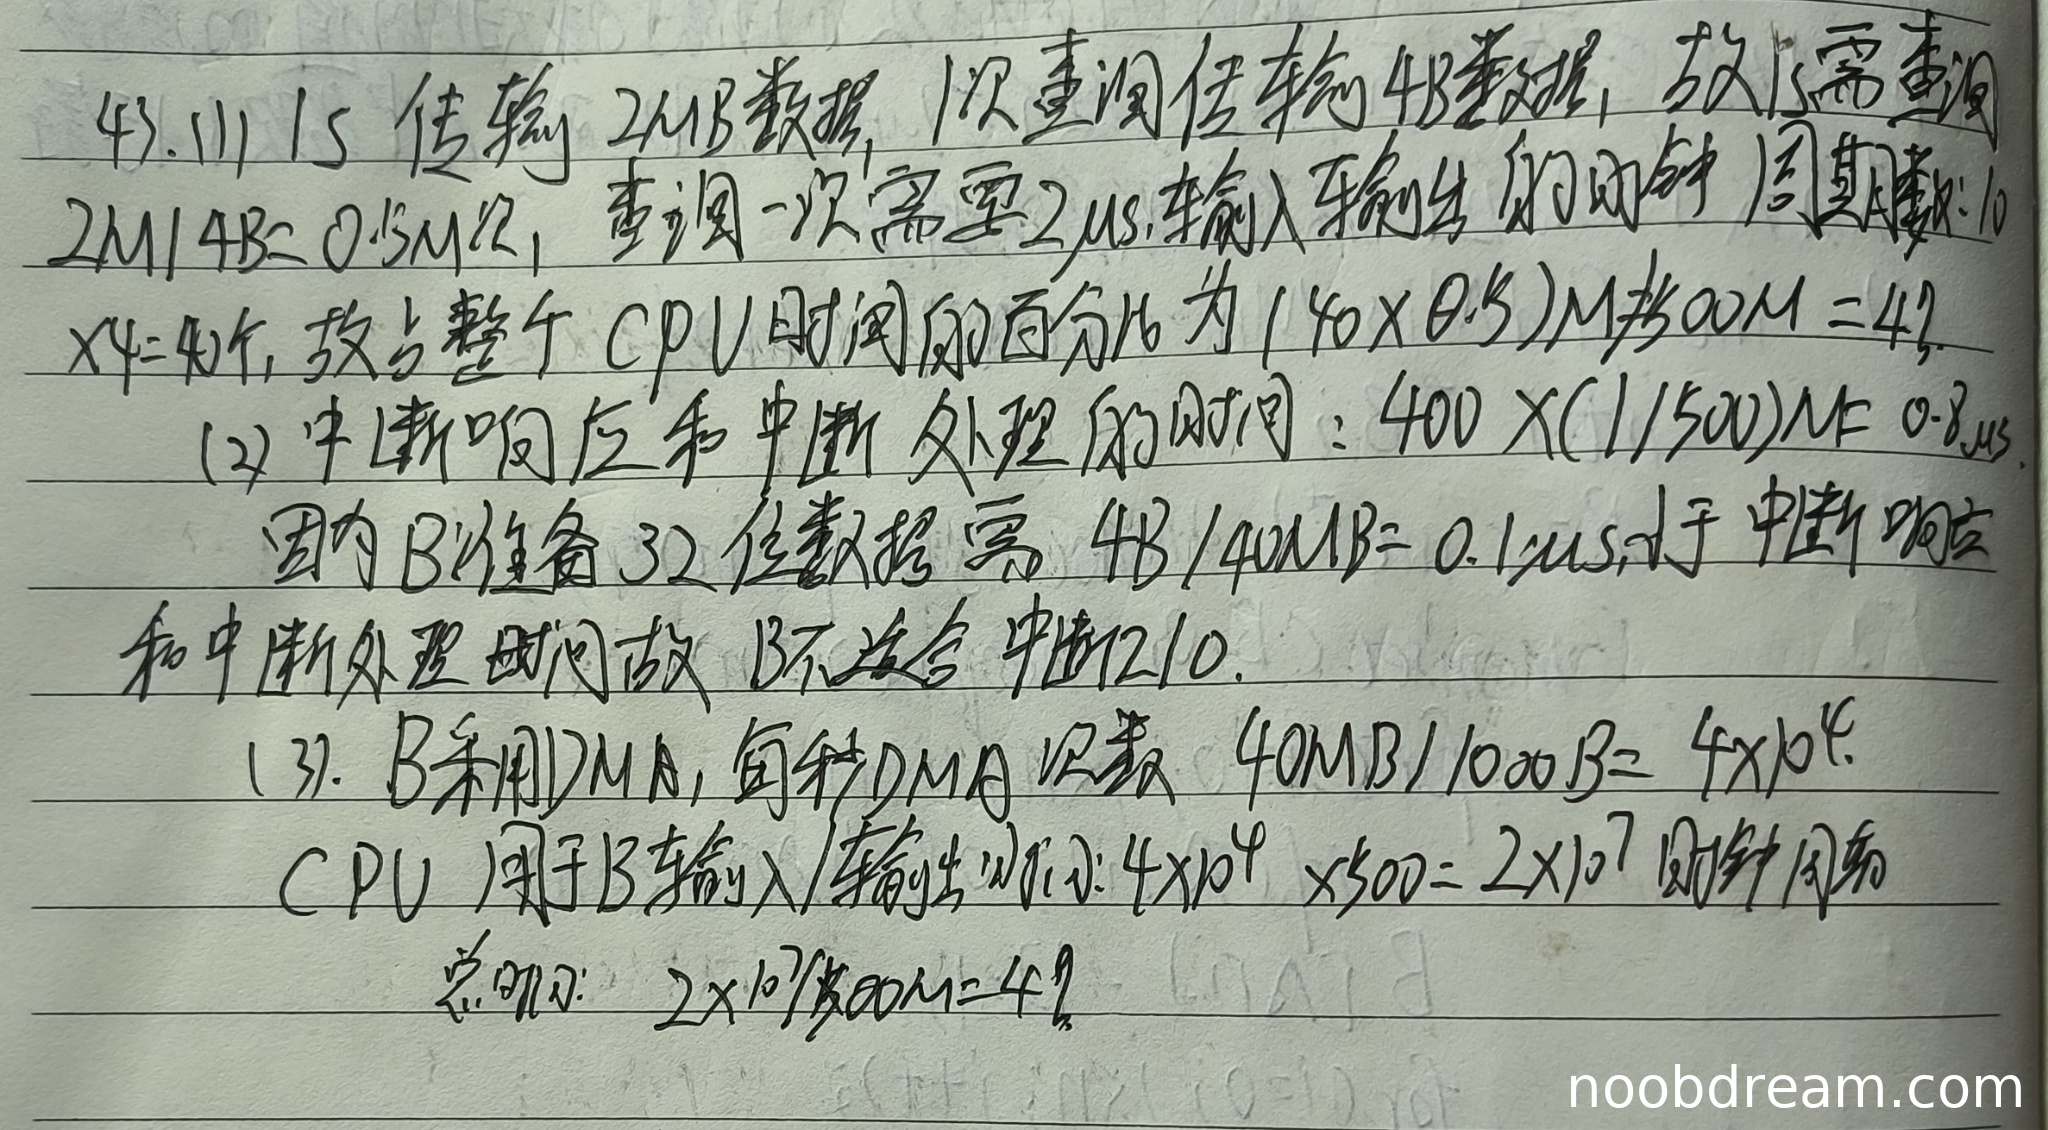 43.(1) 1S 传输 2MB数据, 1次查询传输4B数据, 故1s需查询
2M/4B=0.5M次, 查询一次需要2μs.输入输出的时钟周期数:10
×4=40个, 故占整个CPU时间的百分比为(40×0.5)M/500M=4%.
(2) 中断响应和中断处理的时间: 400×(1/500)M=0.8μs.
因为B准备32位数据需 4B/40MB=0.1μs,小于中断响应
和中断处理时间故 B不适合中断I/O.
(3). B采用DMA, 每秒DMA次数 40MB/1000B=4×10⁴.
CPU用于B输入/输出时间:4×10⁴×500=2×10⁷时钟周期
总时间: 2×10⁷/500M=4%
noobdream.com